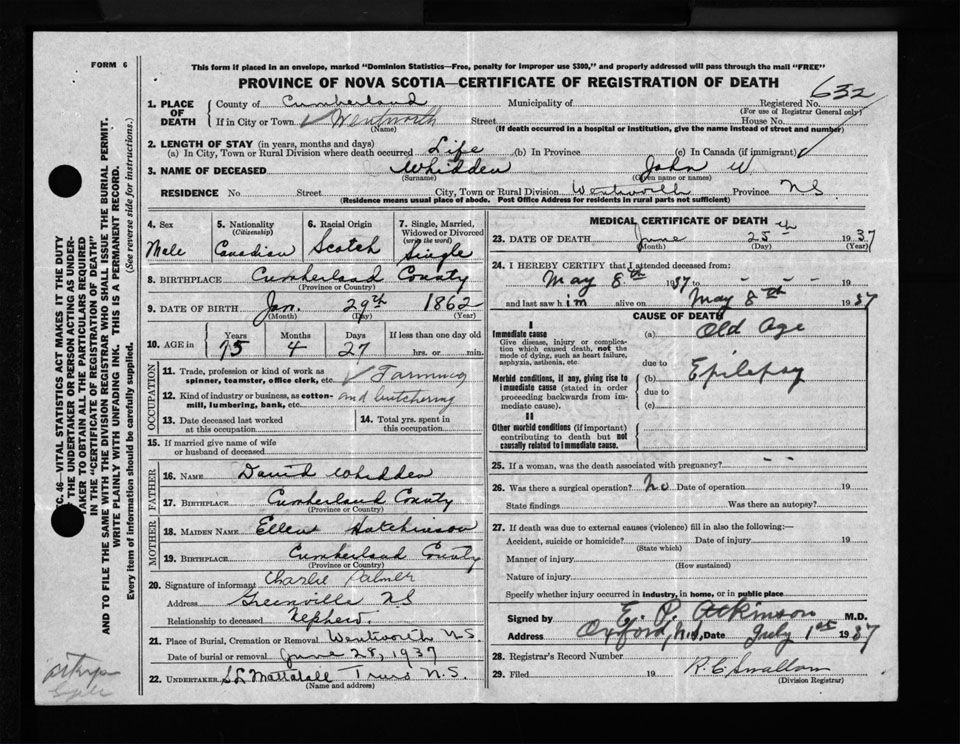 FORM 6
This form if placed in an envelope, marked "Dominion Statistics—Free, penalty for improper use $300," and properly addressed will pass through the mail "FREE"
PROVINCE OF NOVA SCOTIA—CERTIFICATE OF REGISTRATION OF DEATH
632
1. PLACE OF DEATH
County of Cumberland Municipality of Registered No.
(For use of Registrar General only)
If in City or Town Wentworth Street House No.
(Name) (If death occurred in a hospital or institution, give the name instead of street and number)
2. LENGTH OF STAY (in years, months and days)
(a) In City, Town or Rural Division where death occurred Life (b) In Province (c) In Canada (if immigrant)
3. NAME OF DECEASED Whidden John W.
(Surname) (Given name or names)
RESIDENCE No. Street City, Town or Rural Division Wentworth Province NS
(Residence means usual place of abode. Post Office Address for residents in rural parts not sufficient)
4. Sex
Male
5. Nationality
(Citizenship)
Canadian
6. Racial Origin
Scotch
7. Single, Married, Widowed or Divorced
(write the word)
Single
8. BIRTHPLACE Cumberland County
(Province or Country)
9. DATE OF BIRTH Jan. 29th 1862
(Month) (Day) (Year)
10. AGE in
Years Months Days If less than one day old
75 4 27 hrs. or min.
OCCUPATION
11. Trade, profession or kind of work as spinner, teamster, office clerk, etc. Farming
12. Kind of industry or business, as cotton-mill, lumbering, bank, etc. and butchering
13. Date deceased last worked at this occupation
14. Total yrs. spent in this occupation
15. If married give name of wife or husband of deceased
FATHER
16. NAME David Whidden
17. BIRTHPLACE Cumberland County
(Province or Country)
MOTHER
18. MAIDEN NAME Ellen Hutchinson
19. BIRTHPLACE Cumberland County
(Province or Country)
20. Signature of informant Charlie Palmer
Address Greenville N S
Relationship to deceased Nephew.
21. Place of Burial, Cremation or Removal Wentworth N.S.
Date of burial or removal June 28, 1937
22. UNDERTAKER Mattatall Truro N.S.
(Name and address)
MEDICAL CERTIFICATE OF DEATH
23. DATE OF DEATH June 25th 1937
(Month) (Day) (Year)
24. I HEREBY CERTIFY that I attended deceased from:
May 8th 1937 to - - - 19
and last saw him alive on May 8th 1937
CAUSE OF DEATH
I
Immediate cause
Give disease, injury or complication which caused death, not the mode of dying, such as heart failure, asphyxia, asthenia, etc.
(a) Old Age
due to
Morbid conditions, if any, giving rise to immediate cause (stated in order proceeding backwards from immediate cause).
(b) Epilepsy
due to
(c)
II
Other morbid conditions (if important) contributing to death but not causally related to immediate cause.
25. If a woman, was the death associated with pregnancy? - -
26. Was there a surgical operation? No Date of operation 19
State findings Was there an autopsy?
27. If death was due to external causes (violence) fill in also the following:—
Accident, suicide or homicide? Date of injury 19
(State which)
Manner of injury
(How sustained)
Nature of injury
Specify whether injury occurred in industry, in home, or in public place
Signed by E. P. Atkinson M.D.
Address Oxford, N.S. Date July 1st 1937
28. Registrar's Record Number
29. Filed 19 R. C. Swallow
(Division Registrar)
C. 46—VITAL STATISTICS ACT MAKES IT THE DUTY
THE UNDERTAKER OR PERSON ACTING AS UNDER-
TAKER TO OBTAIN ALL THE PARTICULARS REQUIRED
IN THE "CERTIFICATE OF REGISTRATION OF DEATH"
AND TO FILE THE SAME WITH THE DIVISION REGISTRAR WHO SHALL ISSUE THE BURIAL PERMIT.
WRITE PLAINLY WITH UNFADING INK. THIS IS A PERMANENT RECORD.
Every item of information should be carefully supplied. (See reverse side for instructions.)